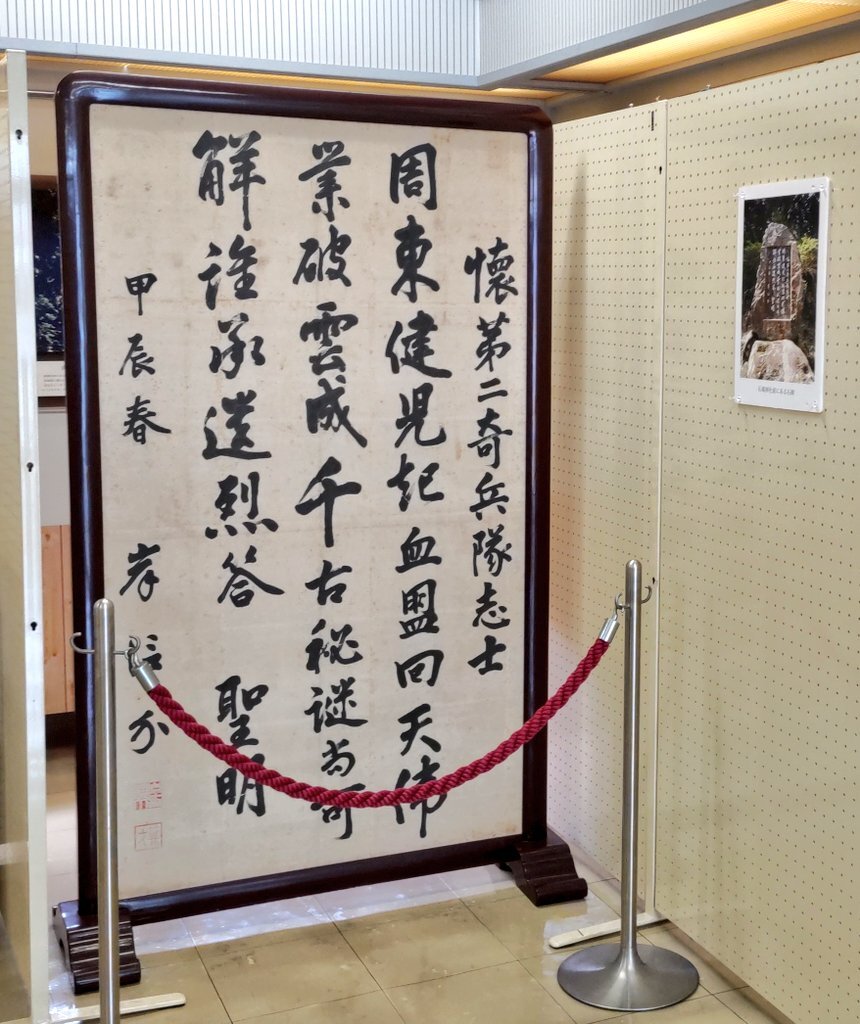 懷第二奇兵隊志士
周東健児起血盟回天偉
業破雲成千古秘謎尚可
解誰承遺烈答 聖明
甲辰春 岸信介